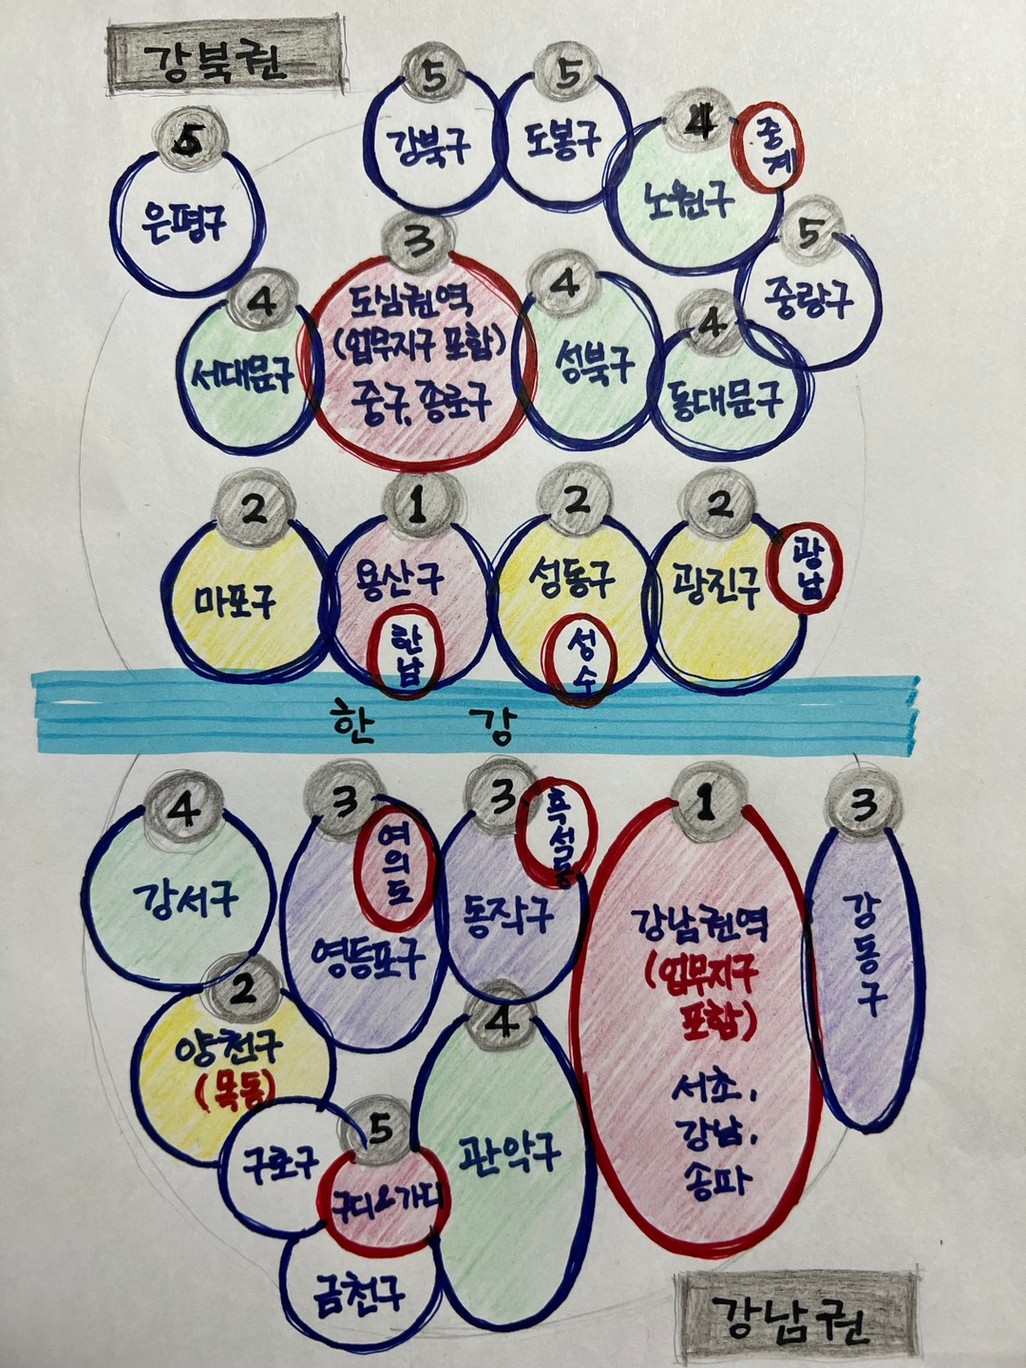 강북권
5
강북구
5
도봉구
4
노원구
중계
5
은평구
5
중랑구
4
서대문구
3
도심권역
(업무지구 포함)
중구, 종로구
4
성북구
4
동대문구
2
마포구
1
용산구
한남
2
성동구
성수
2
광진구
광남
한강
4
강서구
3
여의도
영등포구
3
흑석동
동작구
1
강남권역
(업무지구
포함)
서초,
강남,
송파
3
강동구
2
양천구
(목동)
4
관악구
구로구
5
구디&가디
금천구
강남권